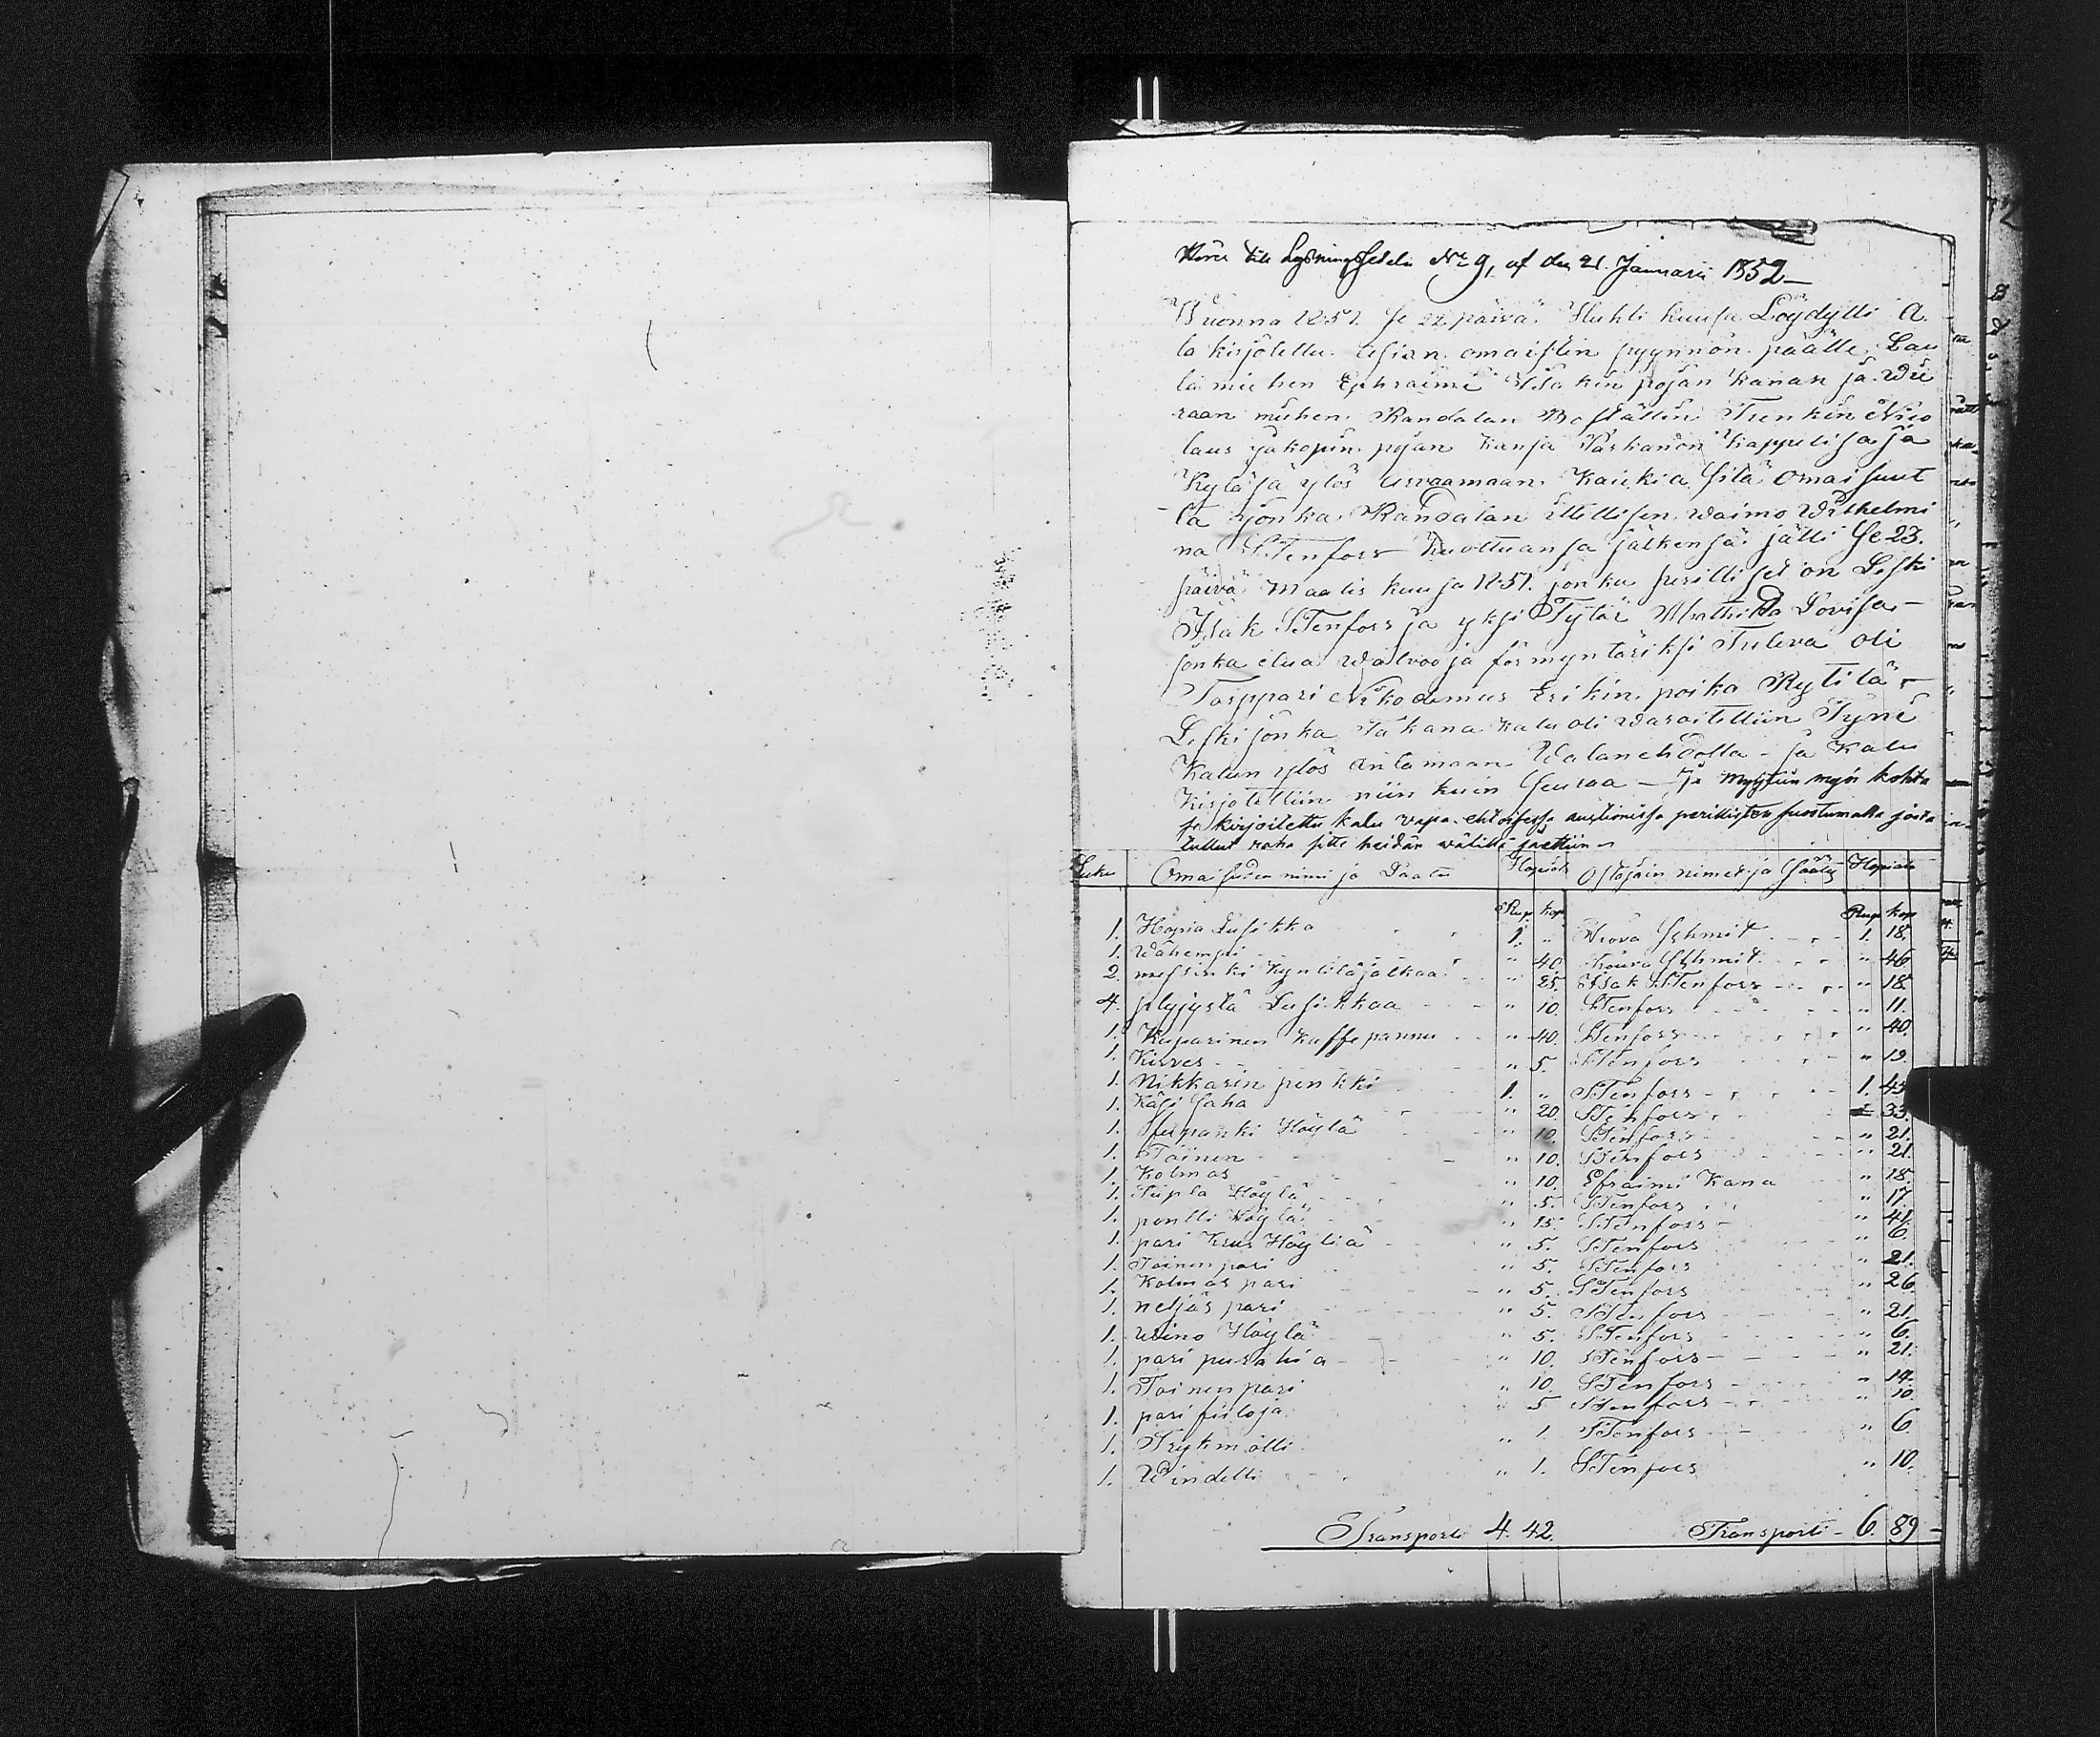 Hörer till Lysningssedeln No 9, af den 21. Januarii 1852 —
Wuonna 1851. se 22 päivä Huhti kuusa Löydytti A.
la kirjotettu asian omaisten pyynnön päälle Lau
ta miehen Ephraimi Isakin pojan Kanan ja Wie
raan miehen Randalan Boställin Trenkin Nico
laus Jakopin pojan kansa Karkanon kappelisa ja
Kyläsä ylös arvaamaan kaikkia sitä omaisuut
ta jonka Randalan ittellisen waimo Wilhelmi
na STenfors kuoltuansa jälkensä jätti se 23.
päivä Maalis kuusa 1851. jonka perilliset on Leski
Isak STenfors ja yksi Tytär Mathilda Lovisa —
jonka etua walvoo ja förmyntäriksi Tuleva oli
Torppari Nikodemus Erikin poika Rytilä —
Leski jonka Takana kalu oli waroitettiin Tyni
Kalun ylös antamaan Walanehdolla — ja kalu
kirjotettiin niin kuin seuraa — Ja myytiin myös kohta
se kirjoitettu kalu vapa-ehtoisessa auctionissa perillisten suostumalla josta
tullut raha sitte heidän välillä jaettiin —
Luku Omaisuden nimi ja Laatu Hopiata Ostajain nimet ja Sääty Hopiata
Rup. kop. Rup. kop
1. Hopia Lusikka 1. " Rova Schmit 1. 18.
1. Wähempi " 40. Rouva Schmit " 46
2. messinki kyntiläjalkaa " 25. Isak STenfors " 18.
4. plyijystä Lusikkaa " 10. STenfors " 11.
1. Kuparinen Kaffe pannu " 40. STenfors " 40.
1. Kirves " 5. STenfors " 19.
1. Nikkarin penkki 1. " STenfors 1. 45
1. Käsi saha " 20. STenfors 33.
1. Höylä " 10. STenfors " 21.
1. Toinen " 10. STenfors " 21.
1. Kolmas " 10. Efraimi Kana " 18.
1. Tupla Höylä " 5. STenfors " 17.
1. pontti Höylä " 15. STenfors " 41.
1. pari Krus Höyliä " 5. STenfors " 6.
1. Toinen pari " 5. STenfors " 21.
1. Kolmas pari " 5. STenfors " 26
1. neljäs pari " 5. STenfors " 21.
1. wiino Höylä " 5. STenfors " 6.
1. pari purahia " 10. STenfors " 21.
1. Toinen pari " 10. STenfors " 14.
1. pari fiiloja 5 STenfors " 10
1. Trykmotti " 1. STenfors " 6
1. Windelli " 1. STenfors " 10.
Transporti 4. 42. Transporti — 6. 89 —